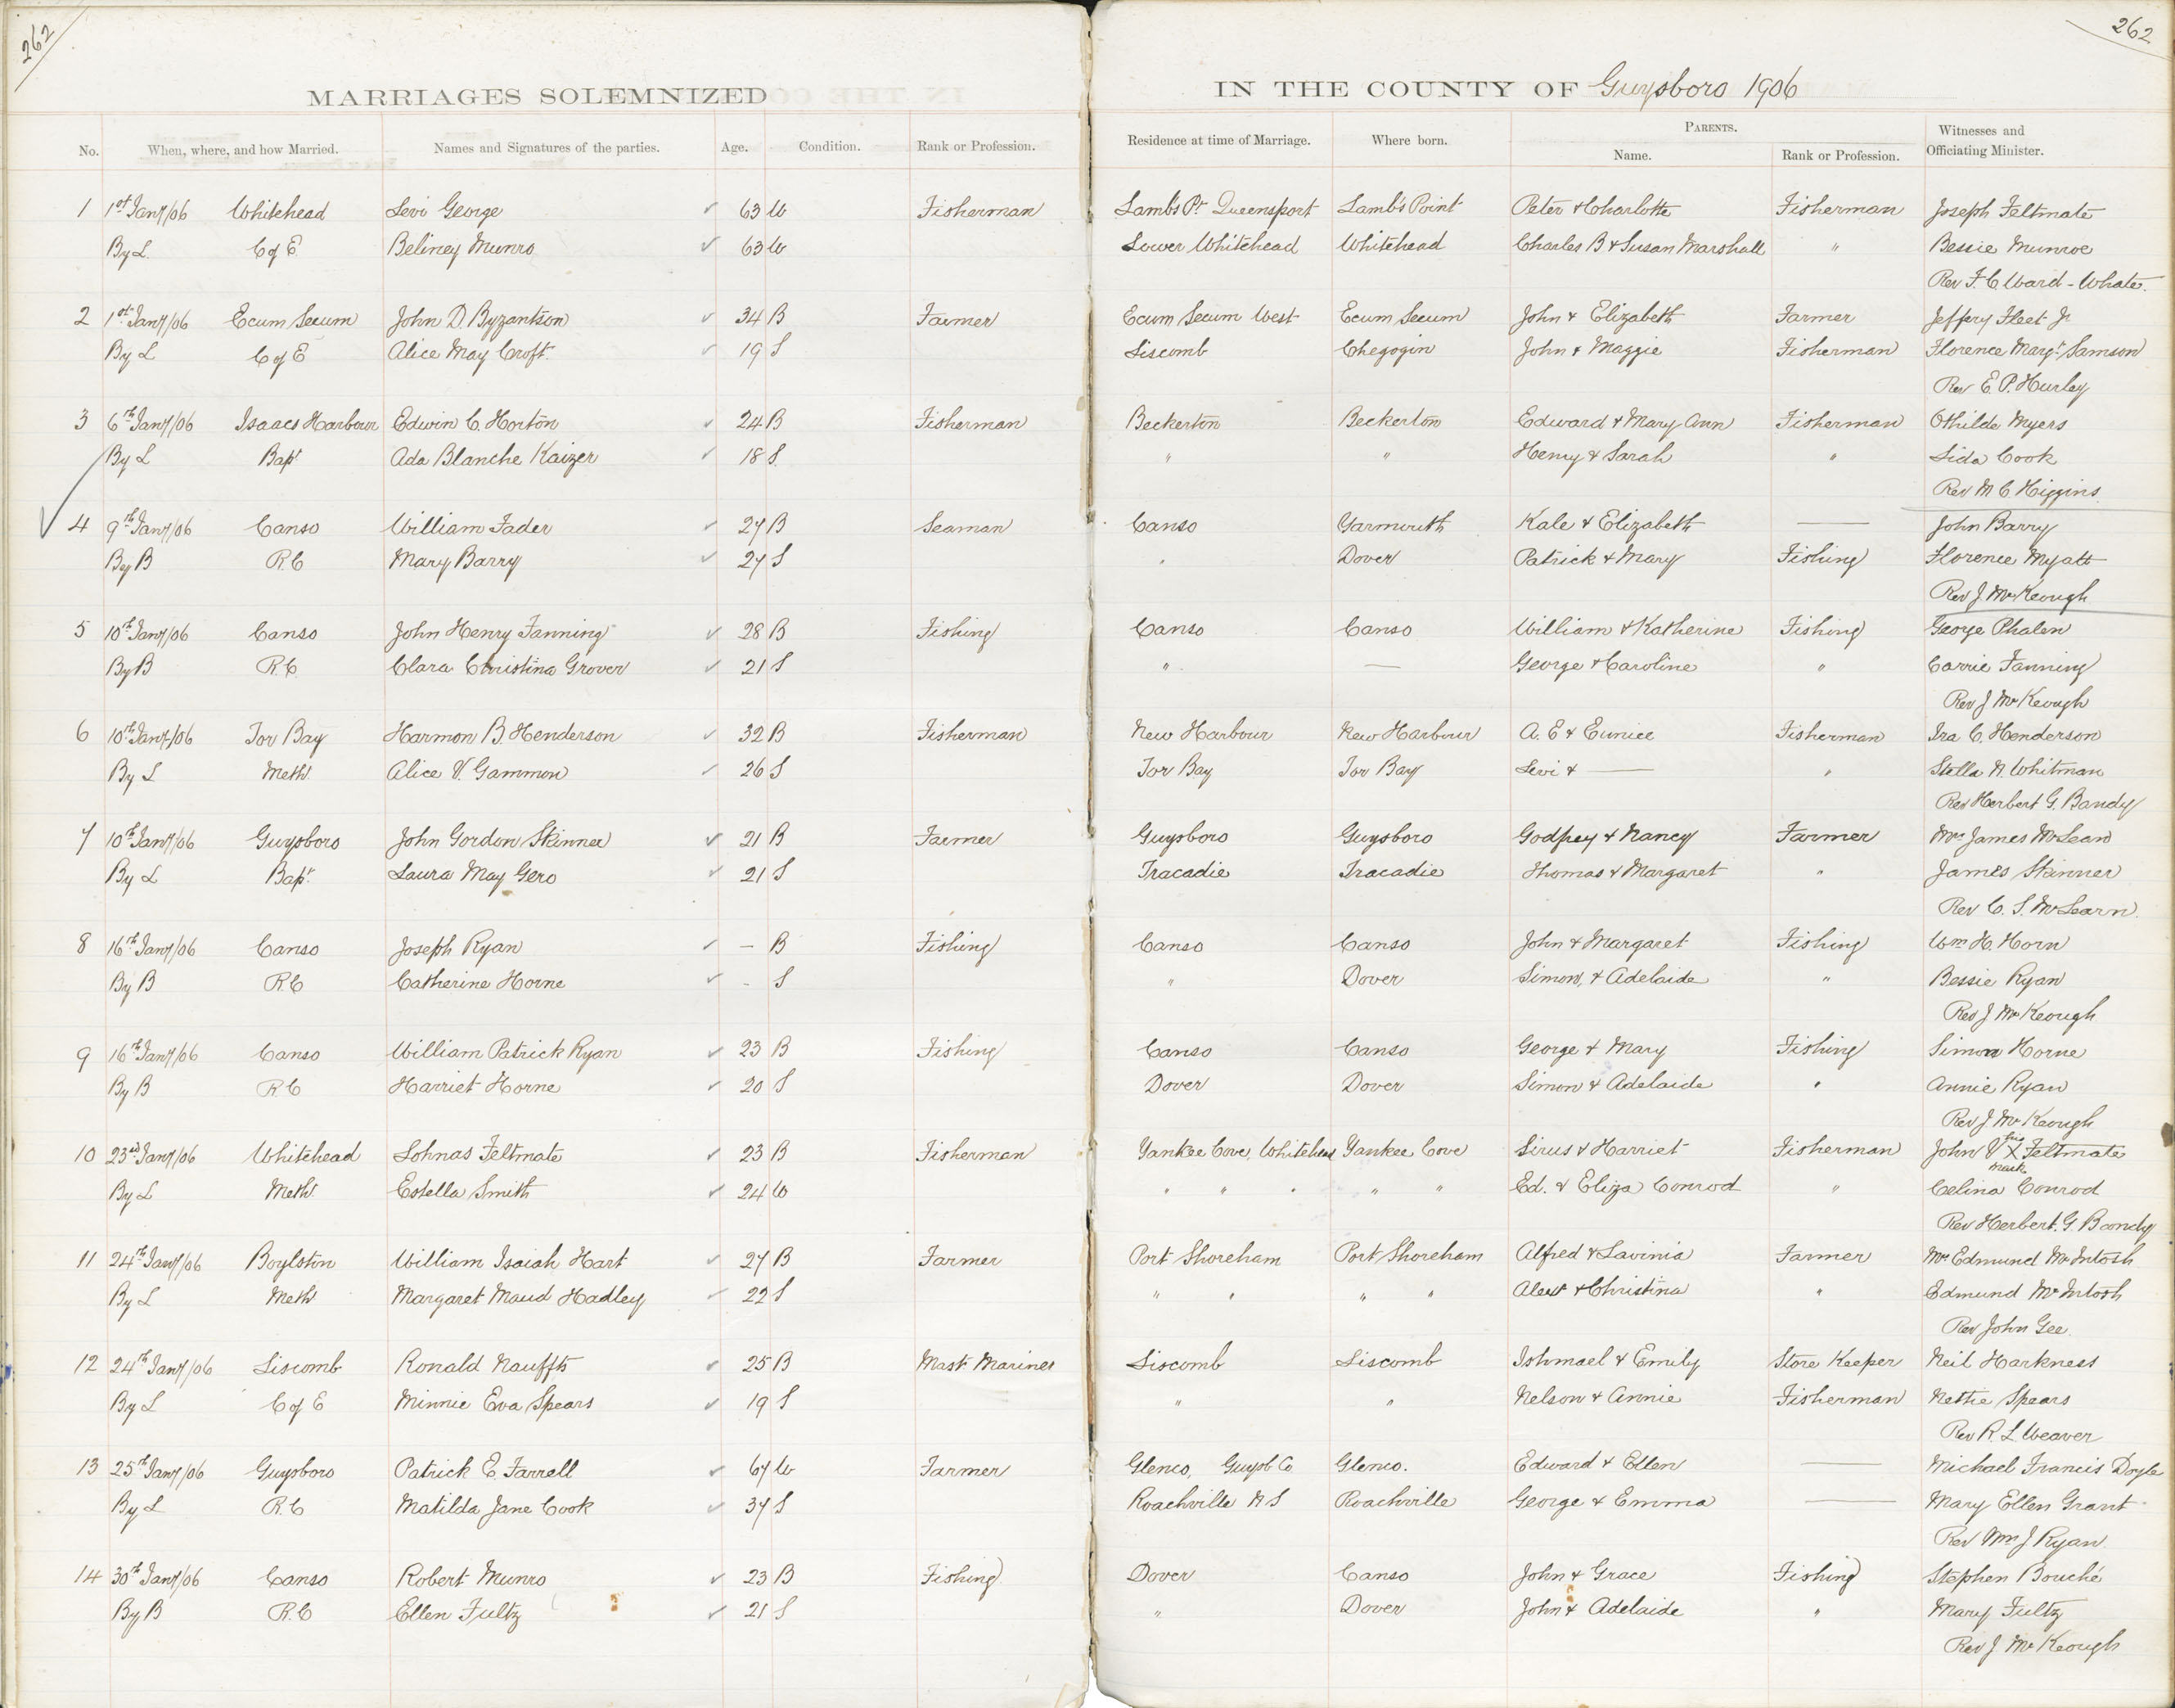 262
262
MARRIAGES SOLEMNIZED IN THE COUNTY OF Guysboro 1906
No. When, where, and how Married. Names and Signatures of the parties. Age. Condition. Rank or Profession. Residence at time of Marriage. Where born. PARENTS. Name. Rank or Profession. Witnesses and Officiating Minister.
1 1st Jany/06 Whitehead Levi George 63 W Fisherman Lambs Pt Queensport Lamb's Point Peter & Charlotte Fisherman Joseph Feltmate
By L. C of E Beliney Munro 63 W Lower Whitehead Whitehead Charles B & Susan Marshall " Bessie Munroe
Rev F. C Ward-Whate.
2 1st Jany/06 Ecum Secum John D. Byzantson 34 B Farmer Ecum Secum West Ecum Secum John & Elizabeth Farmer Jeffery Fleet Jr
By L C of E Alice May Croft. 19 S Liscomb Chegogin John & Maggie Fisherman Florence Margt Samson
Rev E. P. Hurley
3 6th Jany/06 Isaacs Harbour Edwin C. Horton 24 B Fisherman Beckerton Beckerton Edward & Mary Ann Fisherman Othilde Myers
By L Bapt Ada Blanche Kaizer 18 S. " " Henry & Sarah " Lida Cook
Rev M C Higgins
4 9th Jany/06 Canso William Fader 27 B Seaman Canso Yarmouth Kale & Elizabeth — John Barry
By B R.C Mary Barry 27 S " Dover Patrick & Mary Fishing Florence Myatt
Rev J. McKeough
5 10th Jany/06 Canso John Henry Fanning 28 B Fishing Canso Canso William & Katherine Fishing George Phalen
By B R.C. Clara Christina Grover 21 S " — George & Caroline " Carrie Fanning
Rev J McKeough
6 10th Jany/06 Tor Bay Harmon B. Henderson 32 B Fisherman New Harbour New Harbour A. E & Eunice Fisherman Ira C. Henderson
By L Meth. Alice V. Gammon 26 S Tor Bay Tor Bay Levi & — " Stella N. Whitman
Rev Herbert G. Bandy
7 10th Jany/06 Guysboro John Gordon Skinner 21 B Farmer Guysboro Guysboro Godfrey & Nancy Farmer Mrs James McLean
By L Bapt. Laura May Gero 21 S Tracadie Tracadie Thomas & Margaret " James Skinner
Rev C. S. McLearn.
8 16th Jany/06 Canso Joseph Ryan – B Fishing Canso Canso John & Margaret Fishing Wm H. Horn
By B R.C Catherine Horne - S " Dover Simon, & Adelaide " Bessie Ryan
Rev J McKeough
9 16th Jany/06 Canso William Patrick Ryan 23 B Fishing Canso Canso George & Mary Fishing Simon Horne
By B R.C Harriet Horne 20 S Dover Dover Simon & Adelaide " Annie Ryan
Rev J McKeough
10 23rd Jany/06 Whitehead Lohnas Feltmate 23 B Fisherman Yankee Cove, Whitehead Yankee Cove Sirus & Harriet Fisherman John V his X mark Feltmate
By L Meth. Estella Smith 24 W " " " " " Ed. & Eliza Conrod " Celina Conrod
Rev Herbert. G. Bandy
11 24th Jany/06 Boylston William Isaiah Hart 27 B Farmer Port Shoreham Port Shoreham Alfred & Lavinia Farmer Mrs Edmund McIntosh
By L Meth Margaret Maud Hadley 22 S " " " " Alext & Christina " Edmund McIntosh
Rev John Gee.
12 24th Jany/06 Liscomb Ronald Nauffts 25 B Mast Mariner Liscomb Liscomb Ishmael & Emily Store Keeper Neil Harkness
By L C of E Minnie Eva Spears 19 S " " Nelson & Annie Fisherman Nettie Spears
Rev R. L Weaver
13 25th Jany/06 Guysboro Patrick E Farrell 67 W Farmer Glenco, Guysb Co Glenco. Edward & Ellen — Michael Francis Doyle
By L R.C Matilda Jane Cook 37 S Roachville N.S Roachville George & Emma — Mary Ellen Grant
Rev Wm J Ryan.
14 30th Jany/06 Canso Robert Munro 23 B Fishing Dover Canso John & Grace Fishing Stephen Bouché
By B R.C Ellen Fultz 21 S " Dover John & Adelaide " Mary Fultz
Rev J McKeough